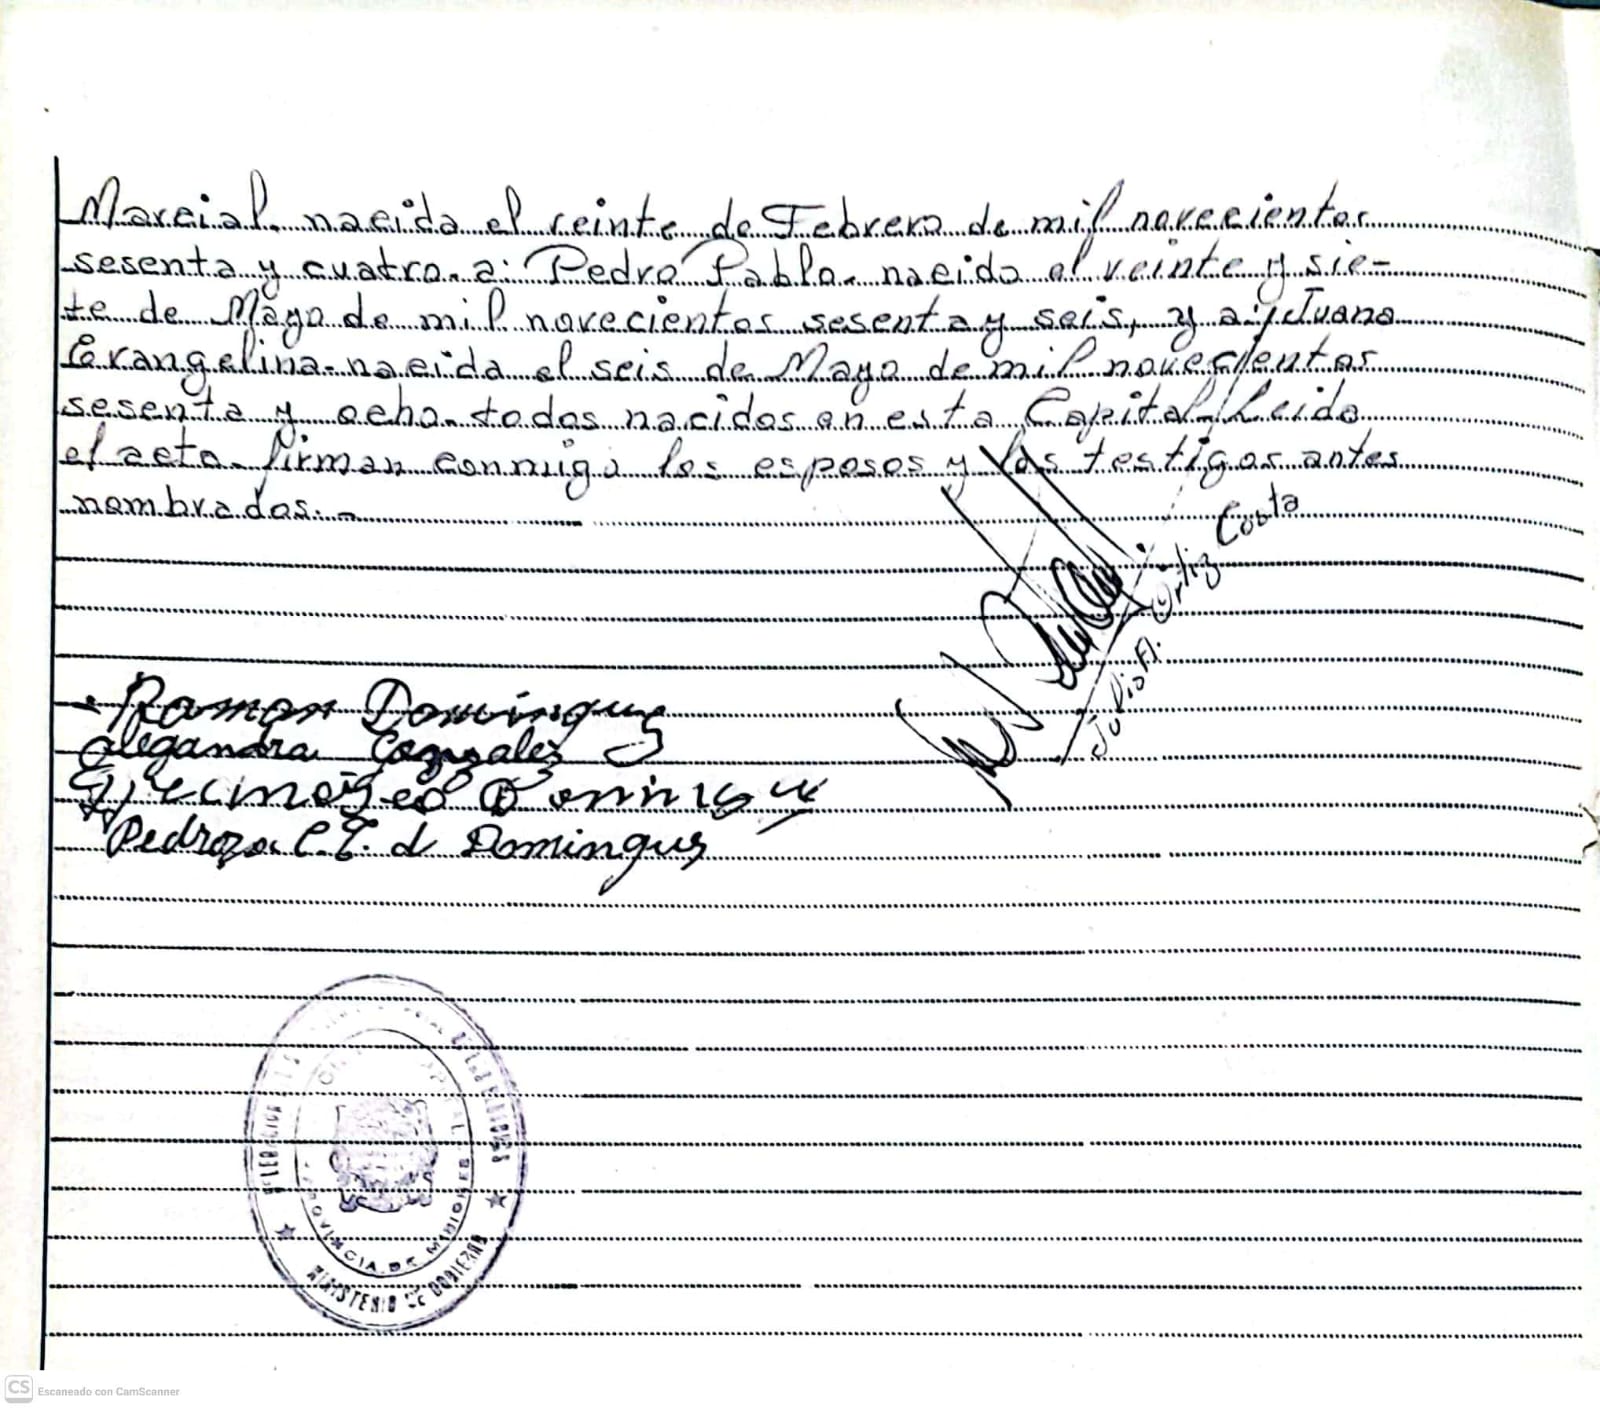 Marcial. nacida el veinte de Febrero de mil novecientos
sesenta y cuatro. a: Pedro Pablo. nacido el veinte y sie-
te de Mayo de mil novecientos sesenta y seis, y a: Juana
Evangelina. nacida el seis de Mayo de mil novecientos
sesenta y ocho. todos nacidos en esta Capital. Leido
el acta. firman conmigo los esposos y los testigos antes
nombrados. -
Julio A. Ortiz Costa
Ramon Domingues
Alegandra Gonzales
Pedroza C. E. d Domingues
PROVINCIA DE MISIONES
MINISTERIO DE GOBIERNO
CS Escaneado con CamScanner